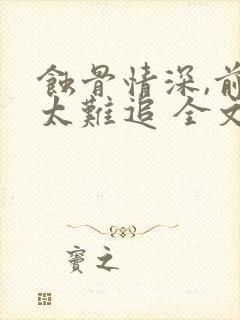 蝕骨情深,前
太難追 全文
竇之